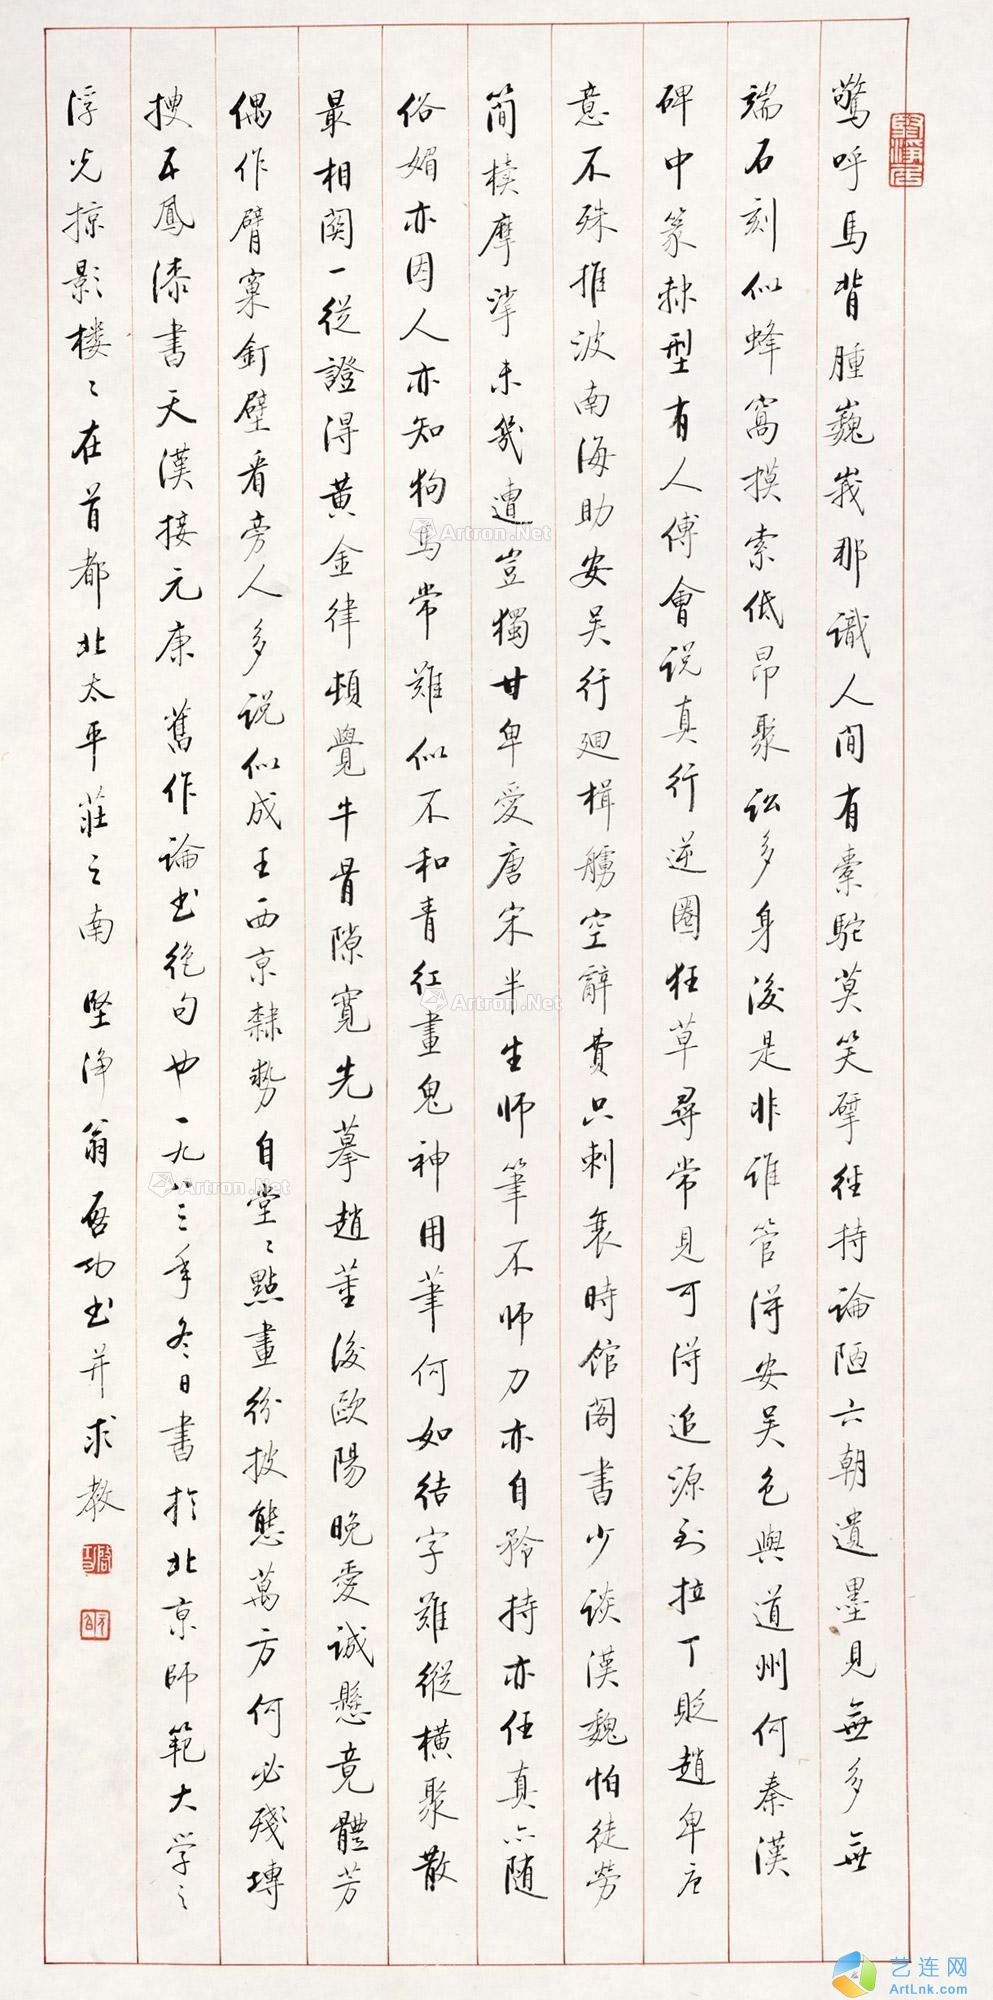 驚呼馬背腫巍峩那識人間有橐駝莫笑擘徑持論陋六朝遺墨見無多無
端石刻似蜂窩摸索低昂聚訟多身後是非誰管得安吳包與道州何秦漢
碑中篆隸型有人傅會说真行逆圈狂草尋常見可得追源到拉丁貶趙卑唐
意不殊推波南海助安吳行迴楫艣空辭費只刺衰時館阁書少談漢魏怕徒勞
简櫝摩挲未幾遭豈獨甘卑愛唐宋半生师筆不师刀亦自矜持亦任真亦随
俗媚亦因人亦知狗馬常難似不和青红畫鬼神用筆何如结字難縱橫聚散
最相関一從證得黃金律頓覺牛骨隙寬先摹趙董後歐陽晚愛誠懸竟體芳
偶作臂窠釘壁看旁人多说似成王西京隸勢自堂〻點畫纷披態萬方何必殘塼
搜五鳳漆書天漢接元康 舊作論书绝句也一九八三年冬日書於北京師範大学之
浮光掠影樓〻在首都北太平莊之南 堅净翁启功书并求教
Artron.Net
Artron.Net
Artron.Net
艺连网
ArtLnk.Com